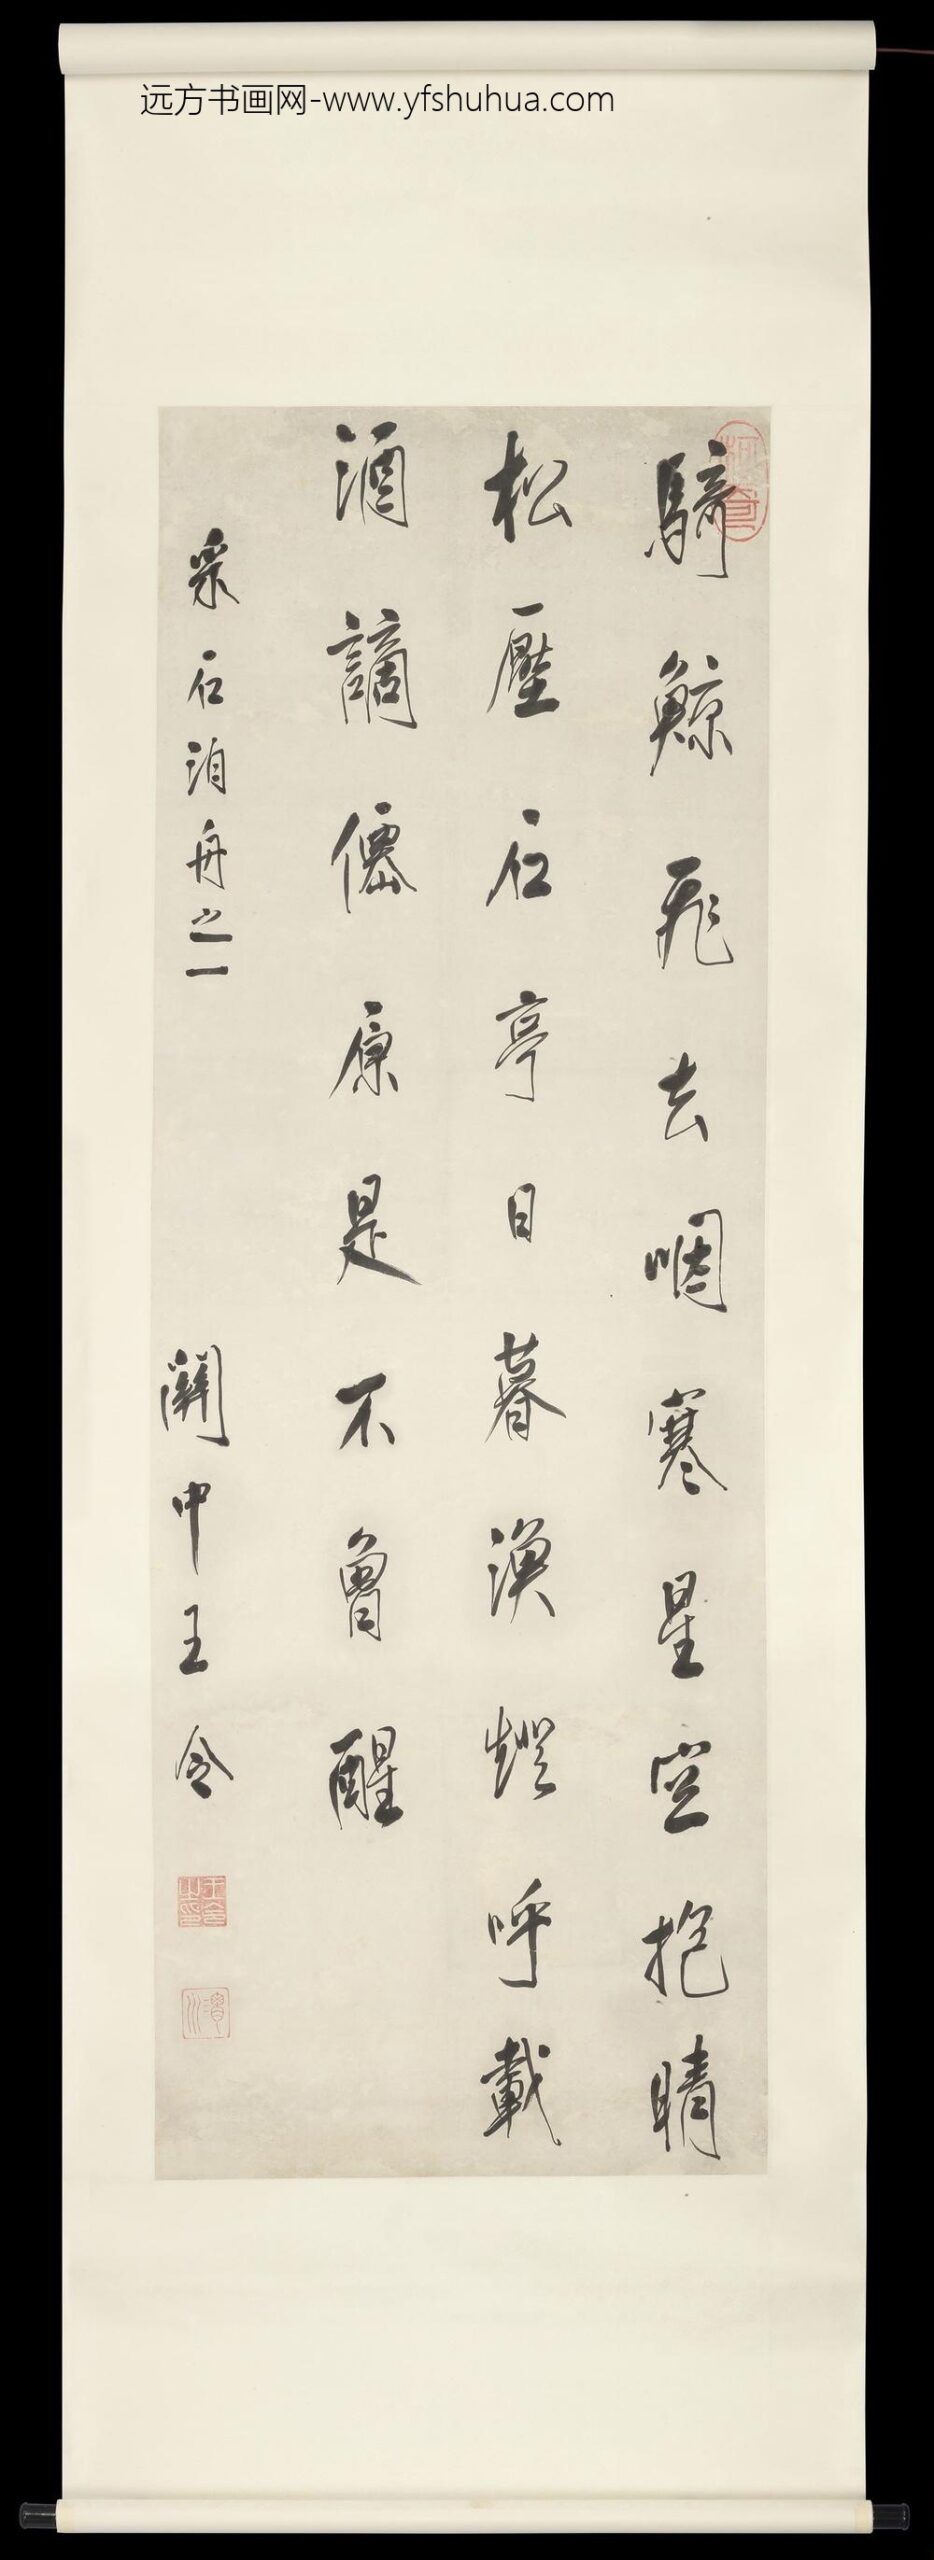 远方书画网-www.yfshuhua.com
騎鯨飛去咽寒星空抱晴
松壓石亭日暮漁燈呼載
酒謫僊原是不曾醒
采石泊舟之一
關中王令